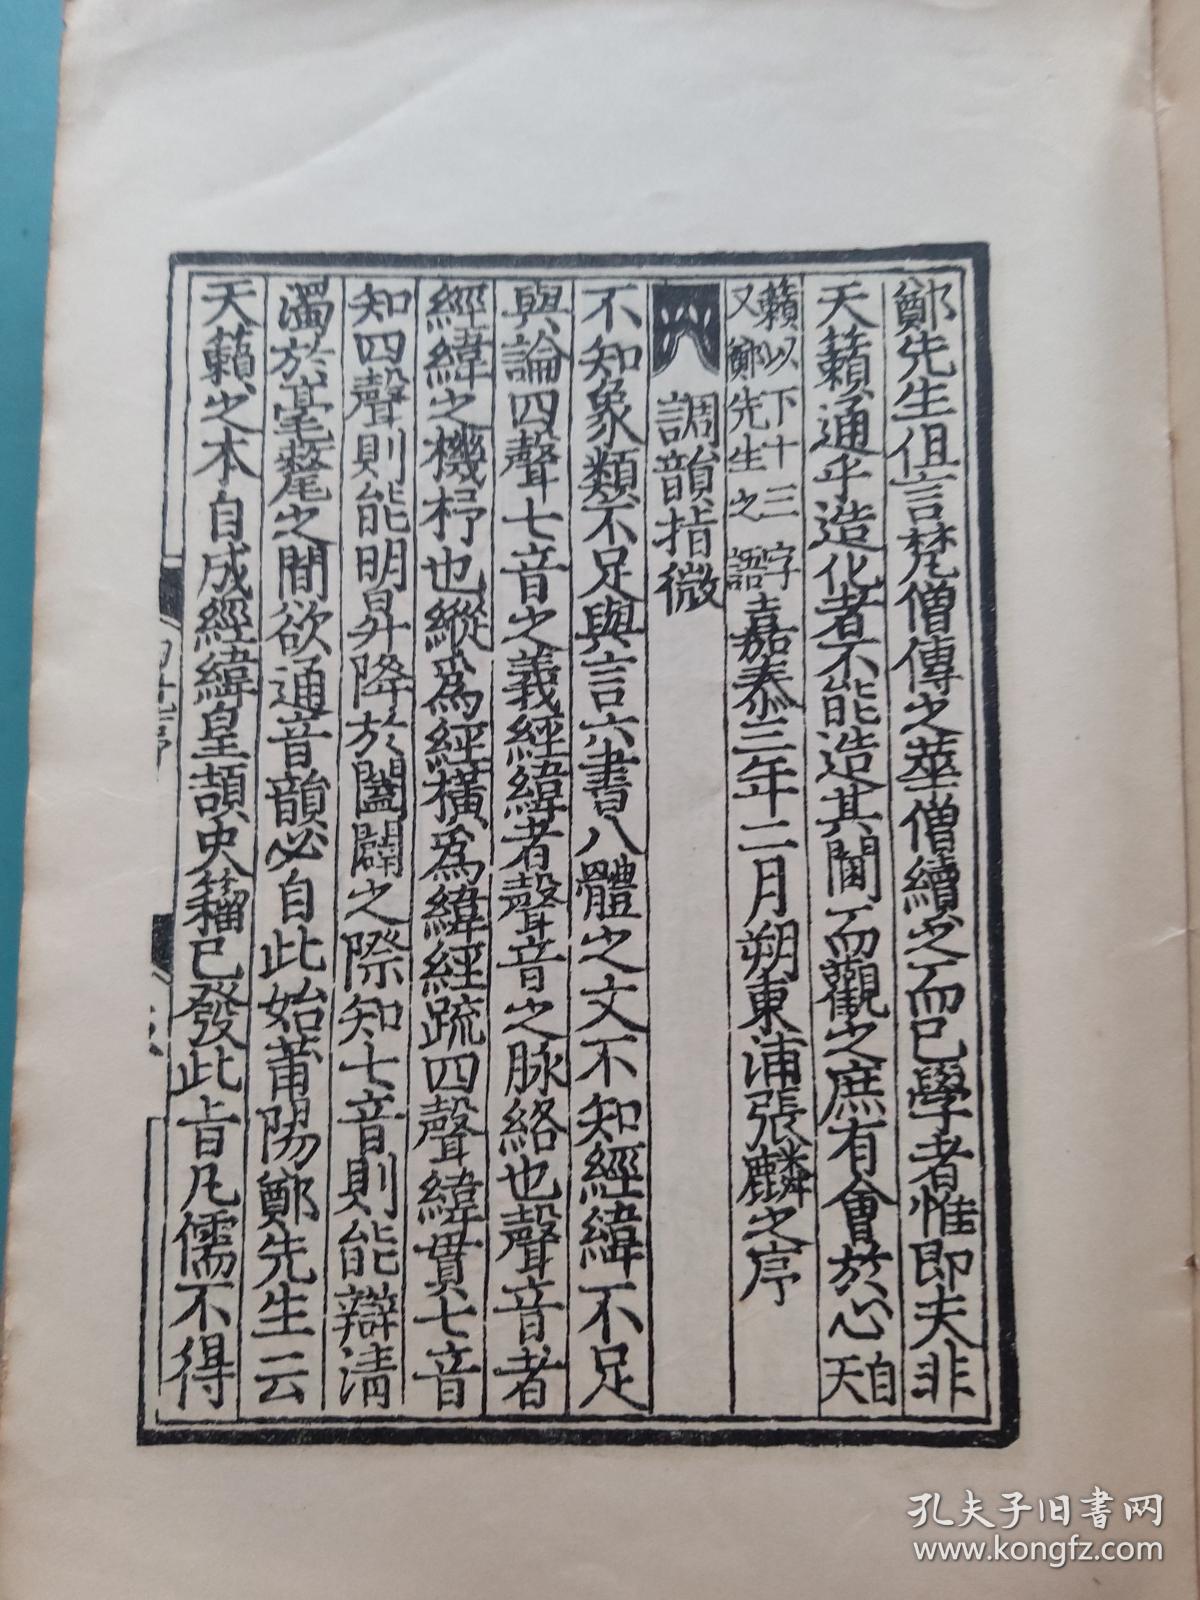 鄭先生但言梵僧傳之華僧續之而已學者惟即夫非
天籟通乎造化者不能造其閫而觀之庶有會於心自天
籟以下十三字又鄭先生之語嘉泰三年二月朔東浦張麟之序
調韻指微
不知象類不足與言六書八體之文不知經緯不足
與論四聲七音之義經緯者聲音之脉絡也聲音者
經緯之機杼也縱爲經橫爲緯經疏四聲緯貫七音
知四聲則能明昇降於闔闢之際知七音則能辯清
濁於毫氂之間欲通音韻必自此始莆陽鄭先生云
天籟之本自成經緯皇頡史籀已發此旨凡儒不得
孔夫子旧書网
www.kongfz.com